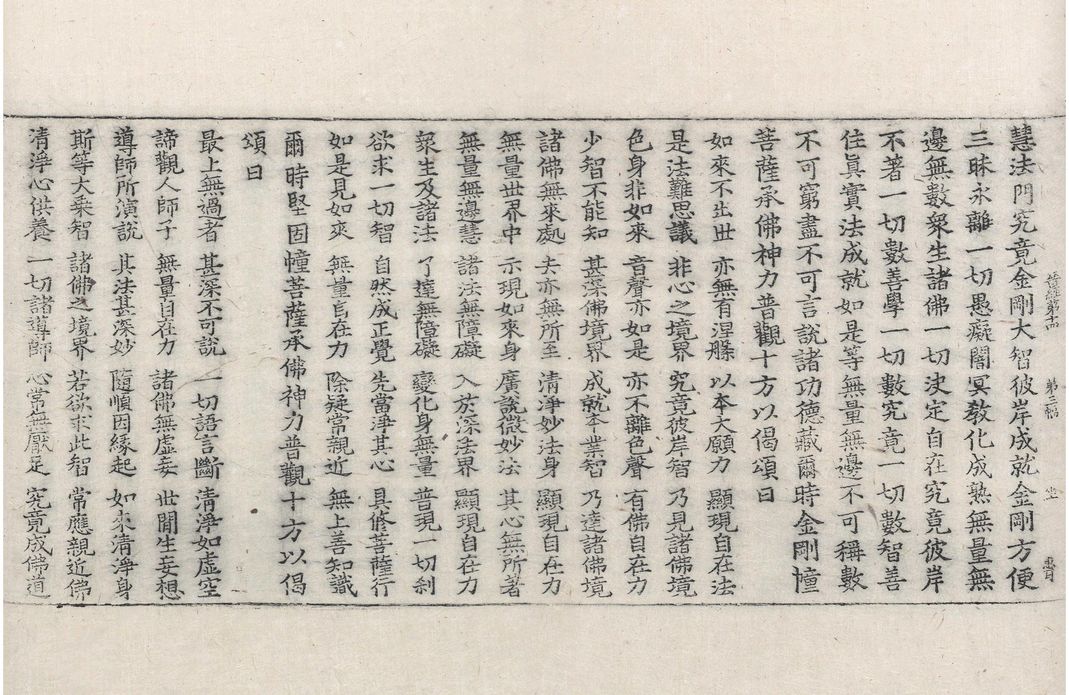 慧法門究竟金剛大智彼岸成就金剛方便
三昧永離一切愚癡闇冥教化成熟無量無
邊無數衆生諸佛一切決定自在究竟彼岸
不著一切數善學一切數究竟一切數智善
住眞實法成就如是等無量無邊不可稱數
不可窮盡不可言說諸功德藏爾時金剛幢
菩薩承佛神力普觀十方以偈頌曰
如來不出世 亦無有涅槃 以本大願力 顯現自在法
是法難思議 非心之境界 究竟彼岸智 乃見諸佛境
色身非如來 音聲亦如是 亦不離色聲 有佛自在力
少智不能知 甚深佛境界 成就本業智 乃達諸佛境
諸佛無來處 去亦無所至 清淨妙法身 顯現自在力
無量世界中 示現如來身 廣說微妙法 其心無所著
無量無邊慧 諸法無障礙 入於深法界 顯現自在力
衆生及諸法 了達無障礙 變化身無量 普現一切刹
欲求一切智 自然成正覺 先當淨其心 具修菩薩行
如是見如來 無量自在力 除疑常親近 無上善知識
爾時堅固幢菩薩承佛神力普觀十方以偈
頌曰
最上無過者 甚深不可說 一切語言斷 清淨如虛空
諦觀人師子 無量自在力 諸佛無虛妄 世間生妄想
導師所演說 其法甚深妙 隨順因緣起 如來清淨身
斯等大乘智 諸佛之境界 若欲求此智 常應親近佛
清淨心供養 一切諸導師 心常無厭足 究竟成佛道